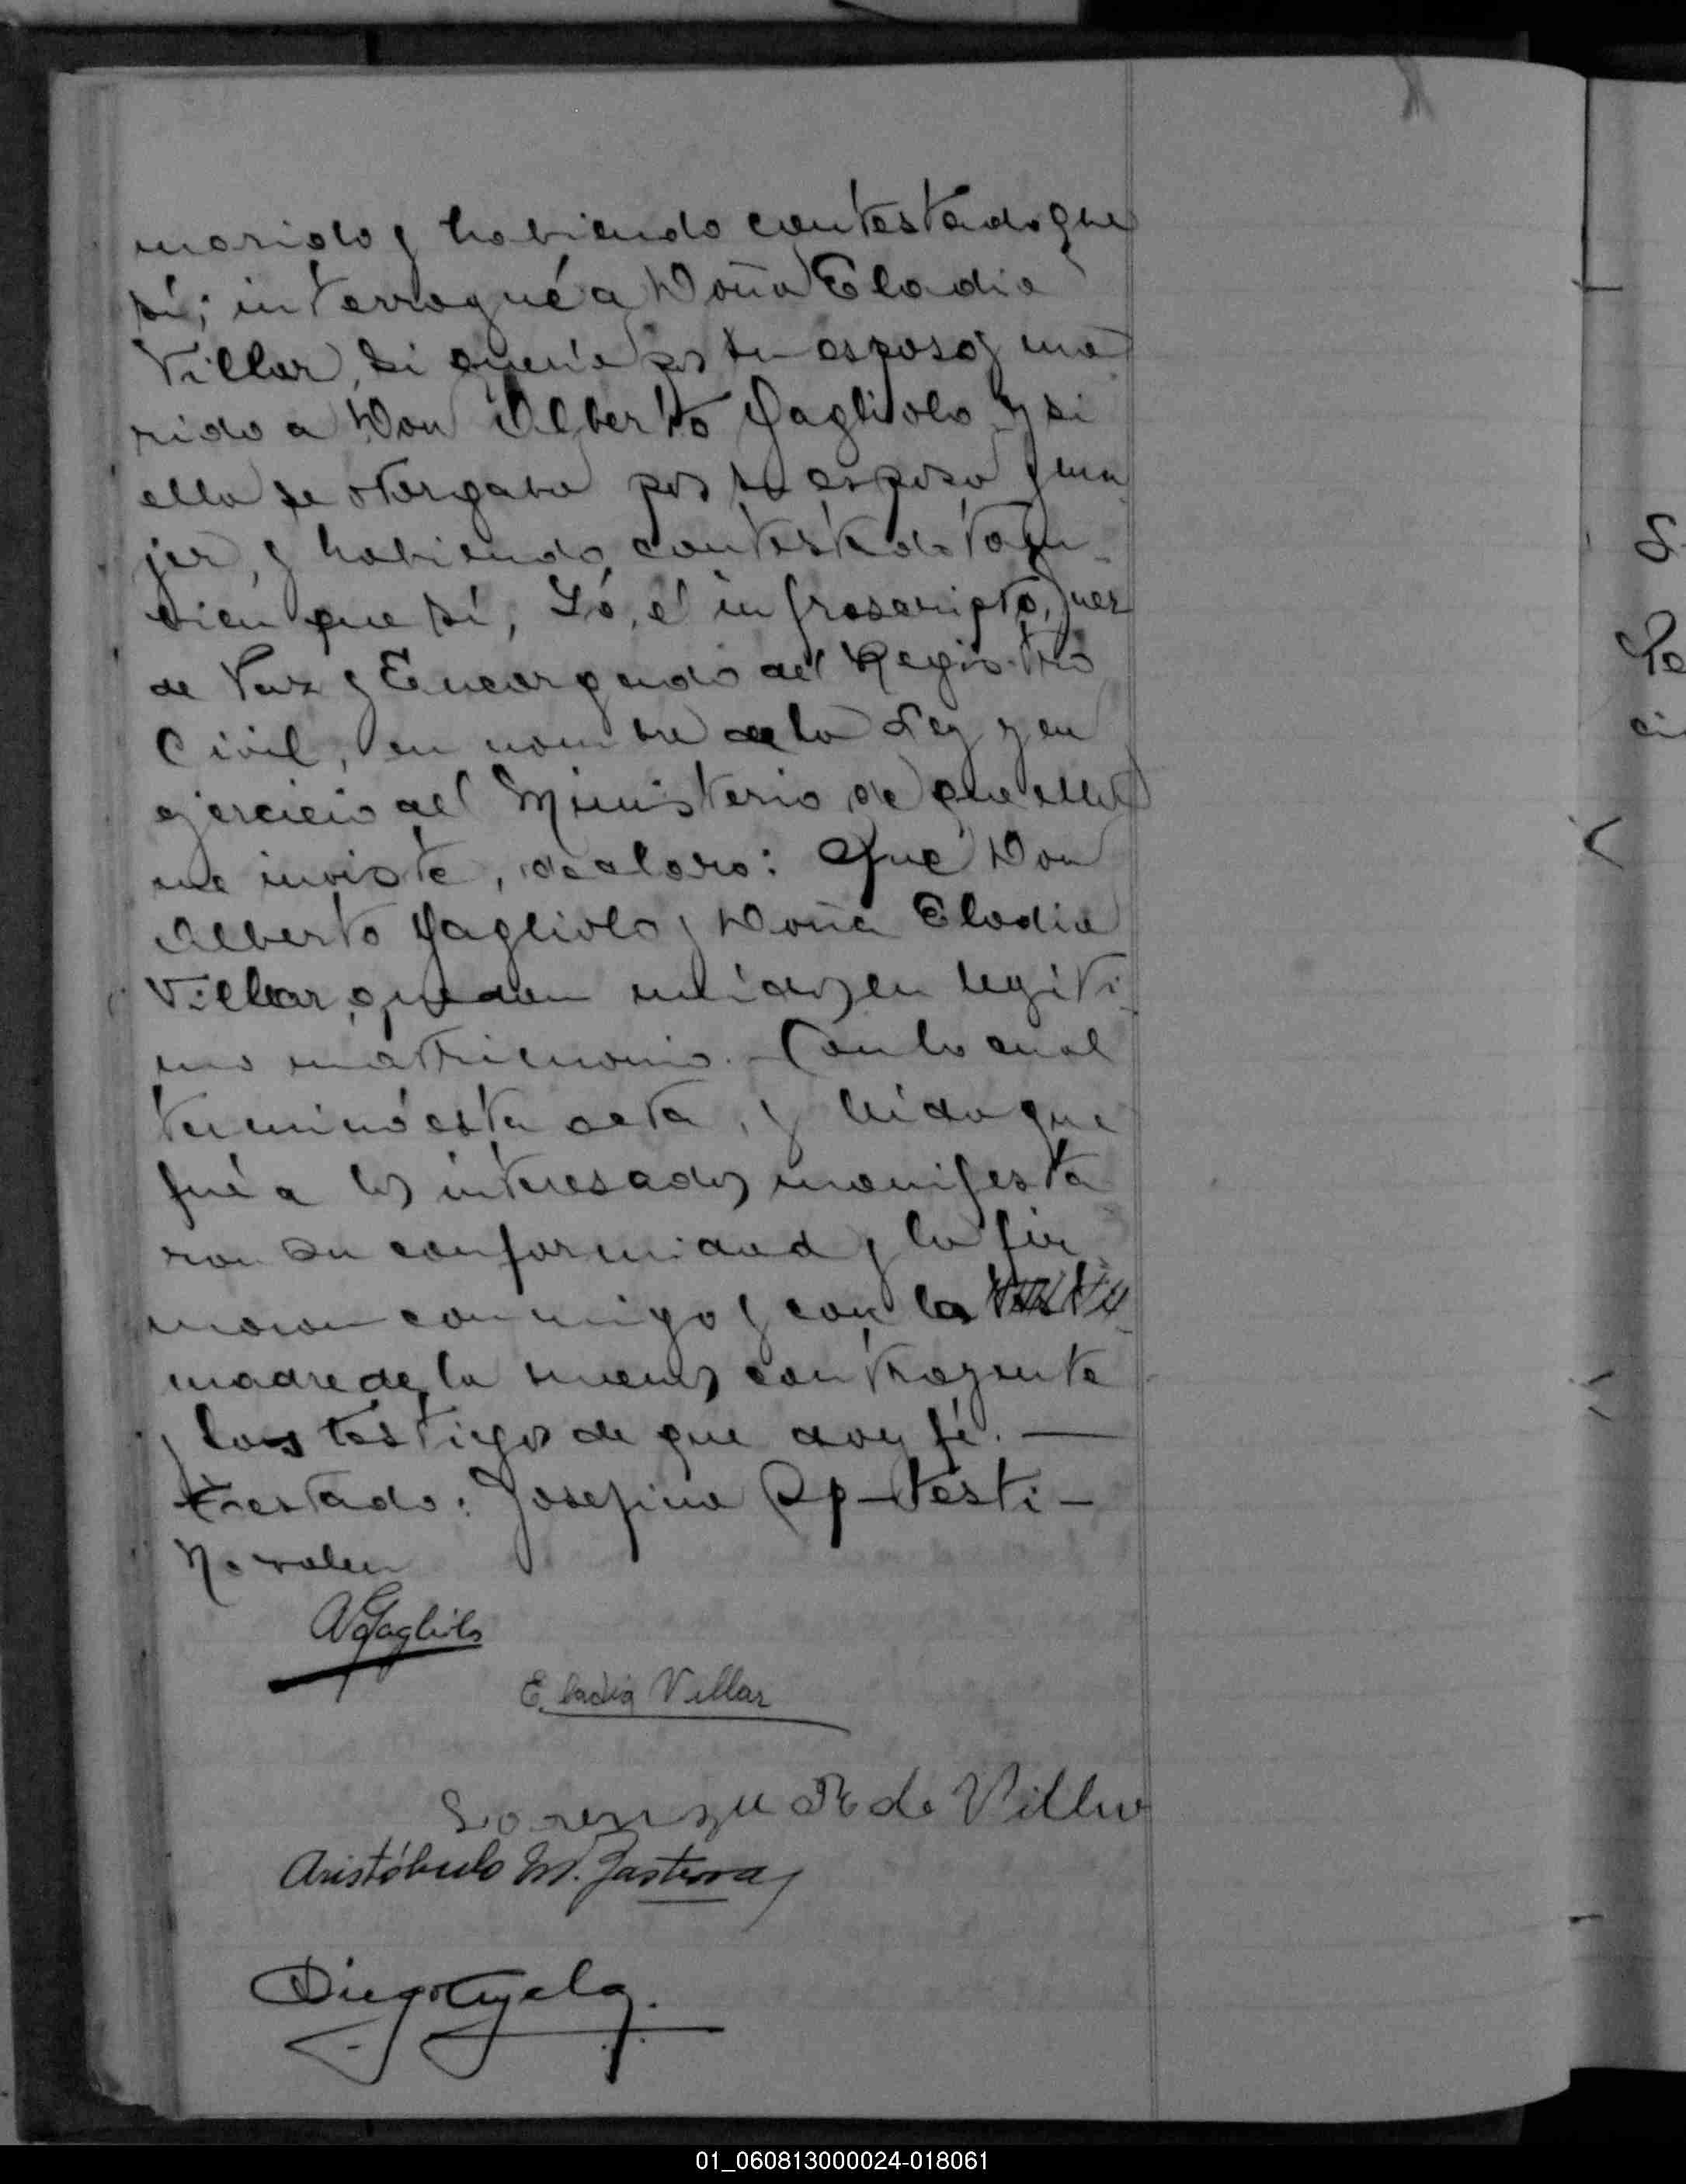 marido y habiendo contestado que
sí; interrogué a Doña Eladia
Villar, si quería por su esposo y ma
rido a Don Alberto Gagliolo y si
ella se otorgaba por su esposa y mu
jer, y habiendo contestado tam-
bien que sí, Yó, el infrascripto, Juez
de Paz y Encargado del Registro
Civil, en nombre de la Ley y en
ejercicio del Ministerio de que ella
me inviste, declaro: Que Don
Alberto Gagliolo y Doña Eladia
Villar, quedan unidos en legíti-
mo matrimonio. - Con lo cual
terminó esta acta, y leida que
fué a los interesados manifesta
ron su conformidad y la fir
maron conmigo y con la
madre de la menor contrayente
y los testigos de que doy fé. —
Testado: Josefina Rp - testi -
No valen
A Gagliolo
Eladia Villar
Lorenza R de Villar
Aristóbulo M.
Diego Ayala.
S
ci
01_060813000024-018061